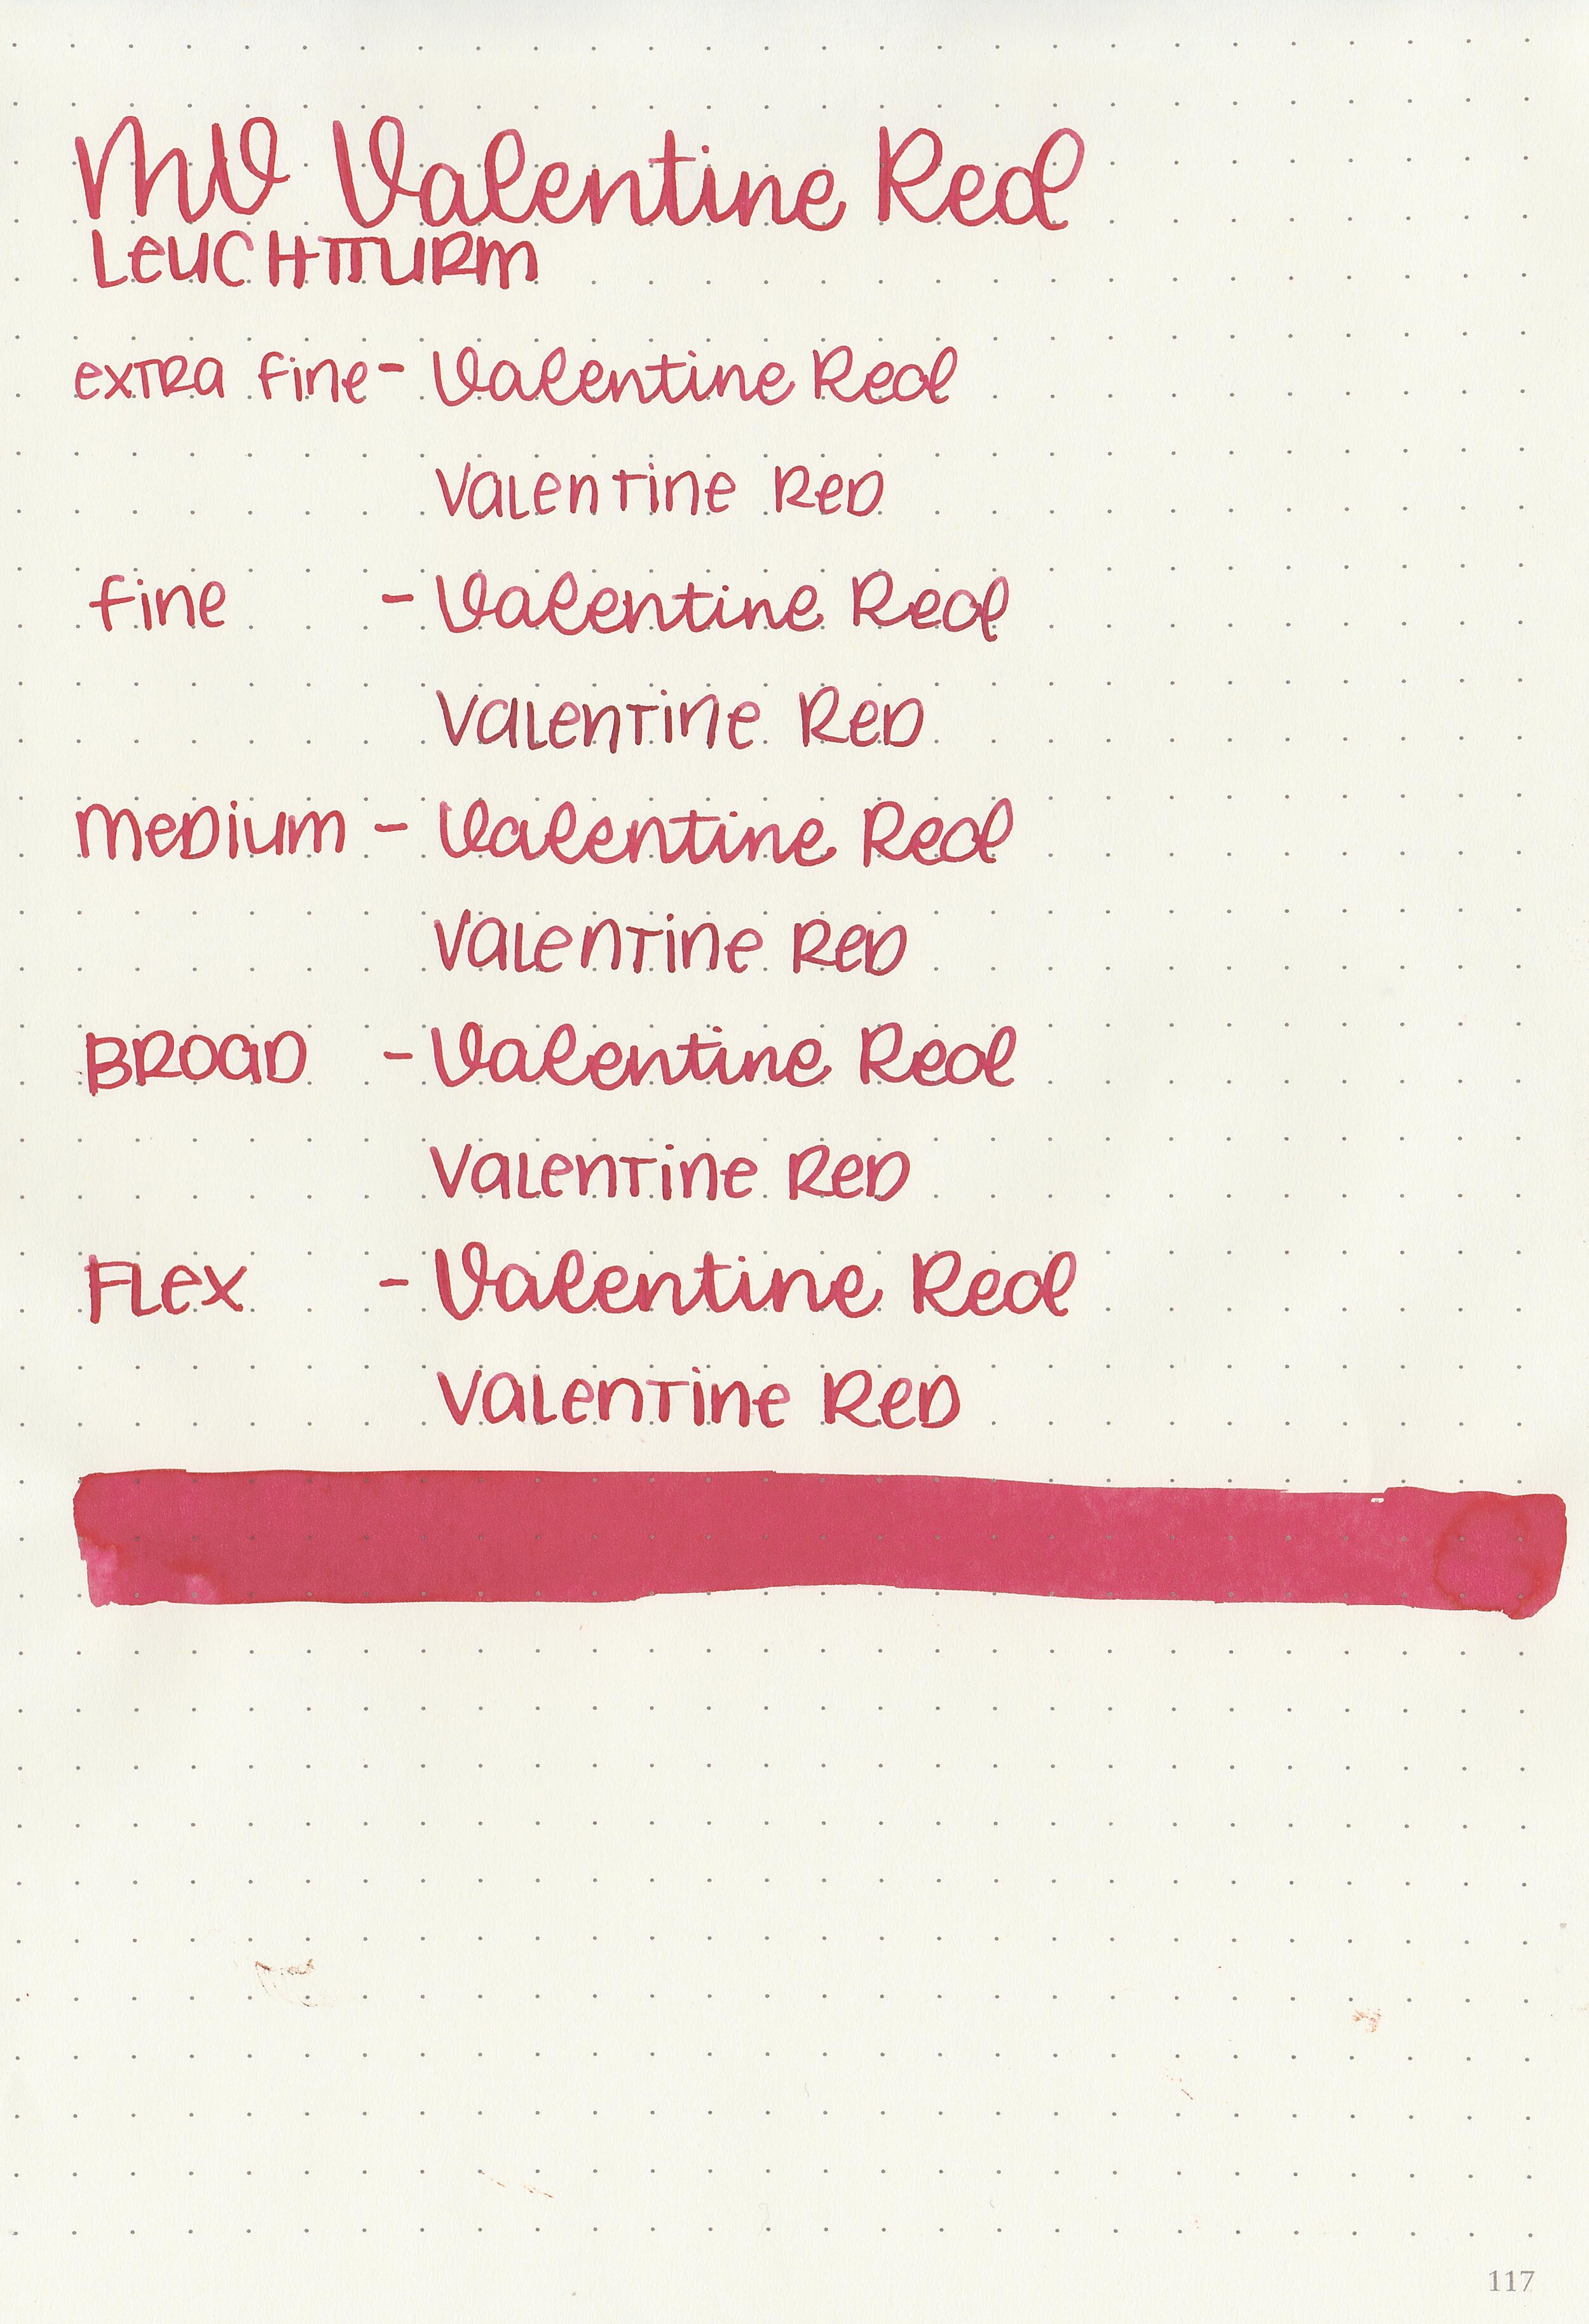 MV Valentine Red
LeuCHTTURm
exTRa fine - Valentine Red
ValenTine Red
fine - Valentine Red
ValenTine Red
meDium - Valentine Red
ValenTine Red
BROaD - Valentine Red
ValenTine Red
FLex - Valentine Red
ValenTine Red
117